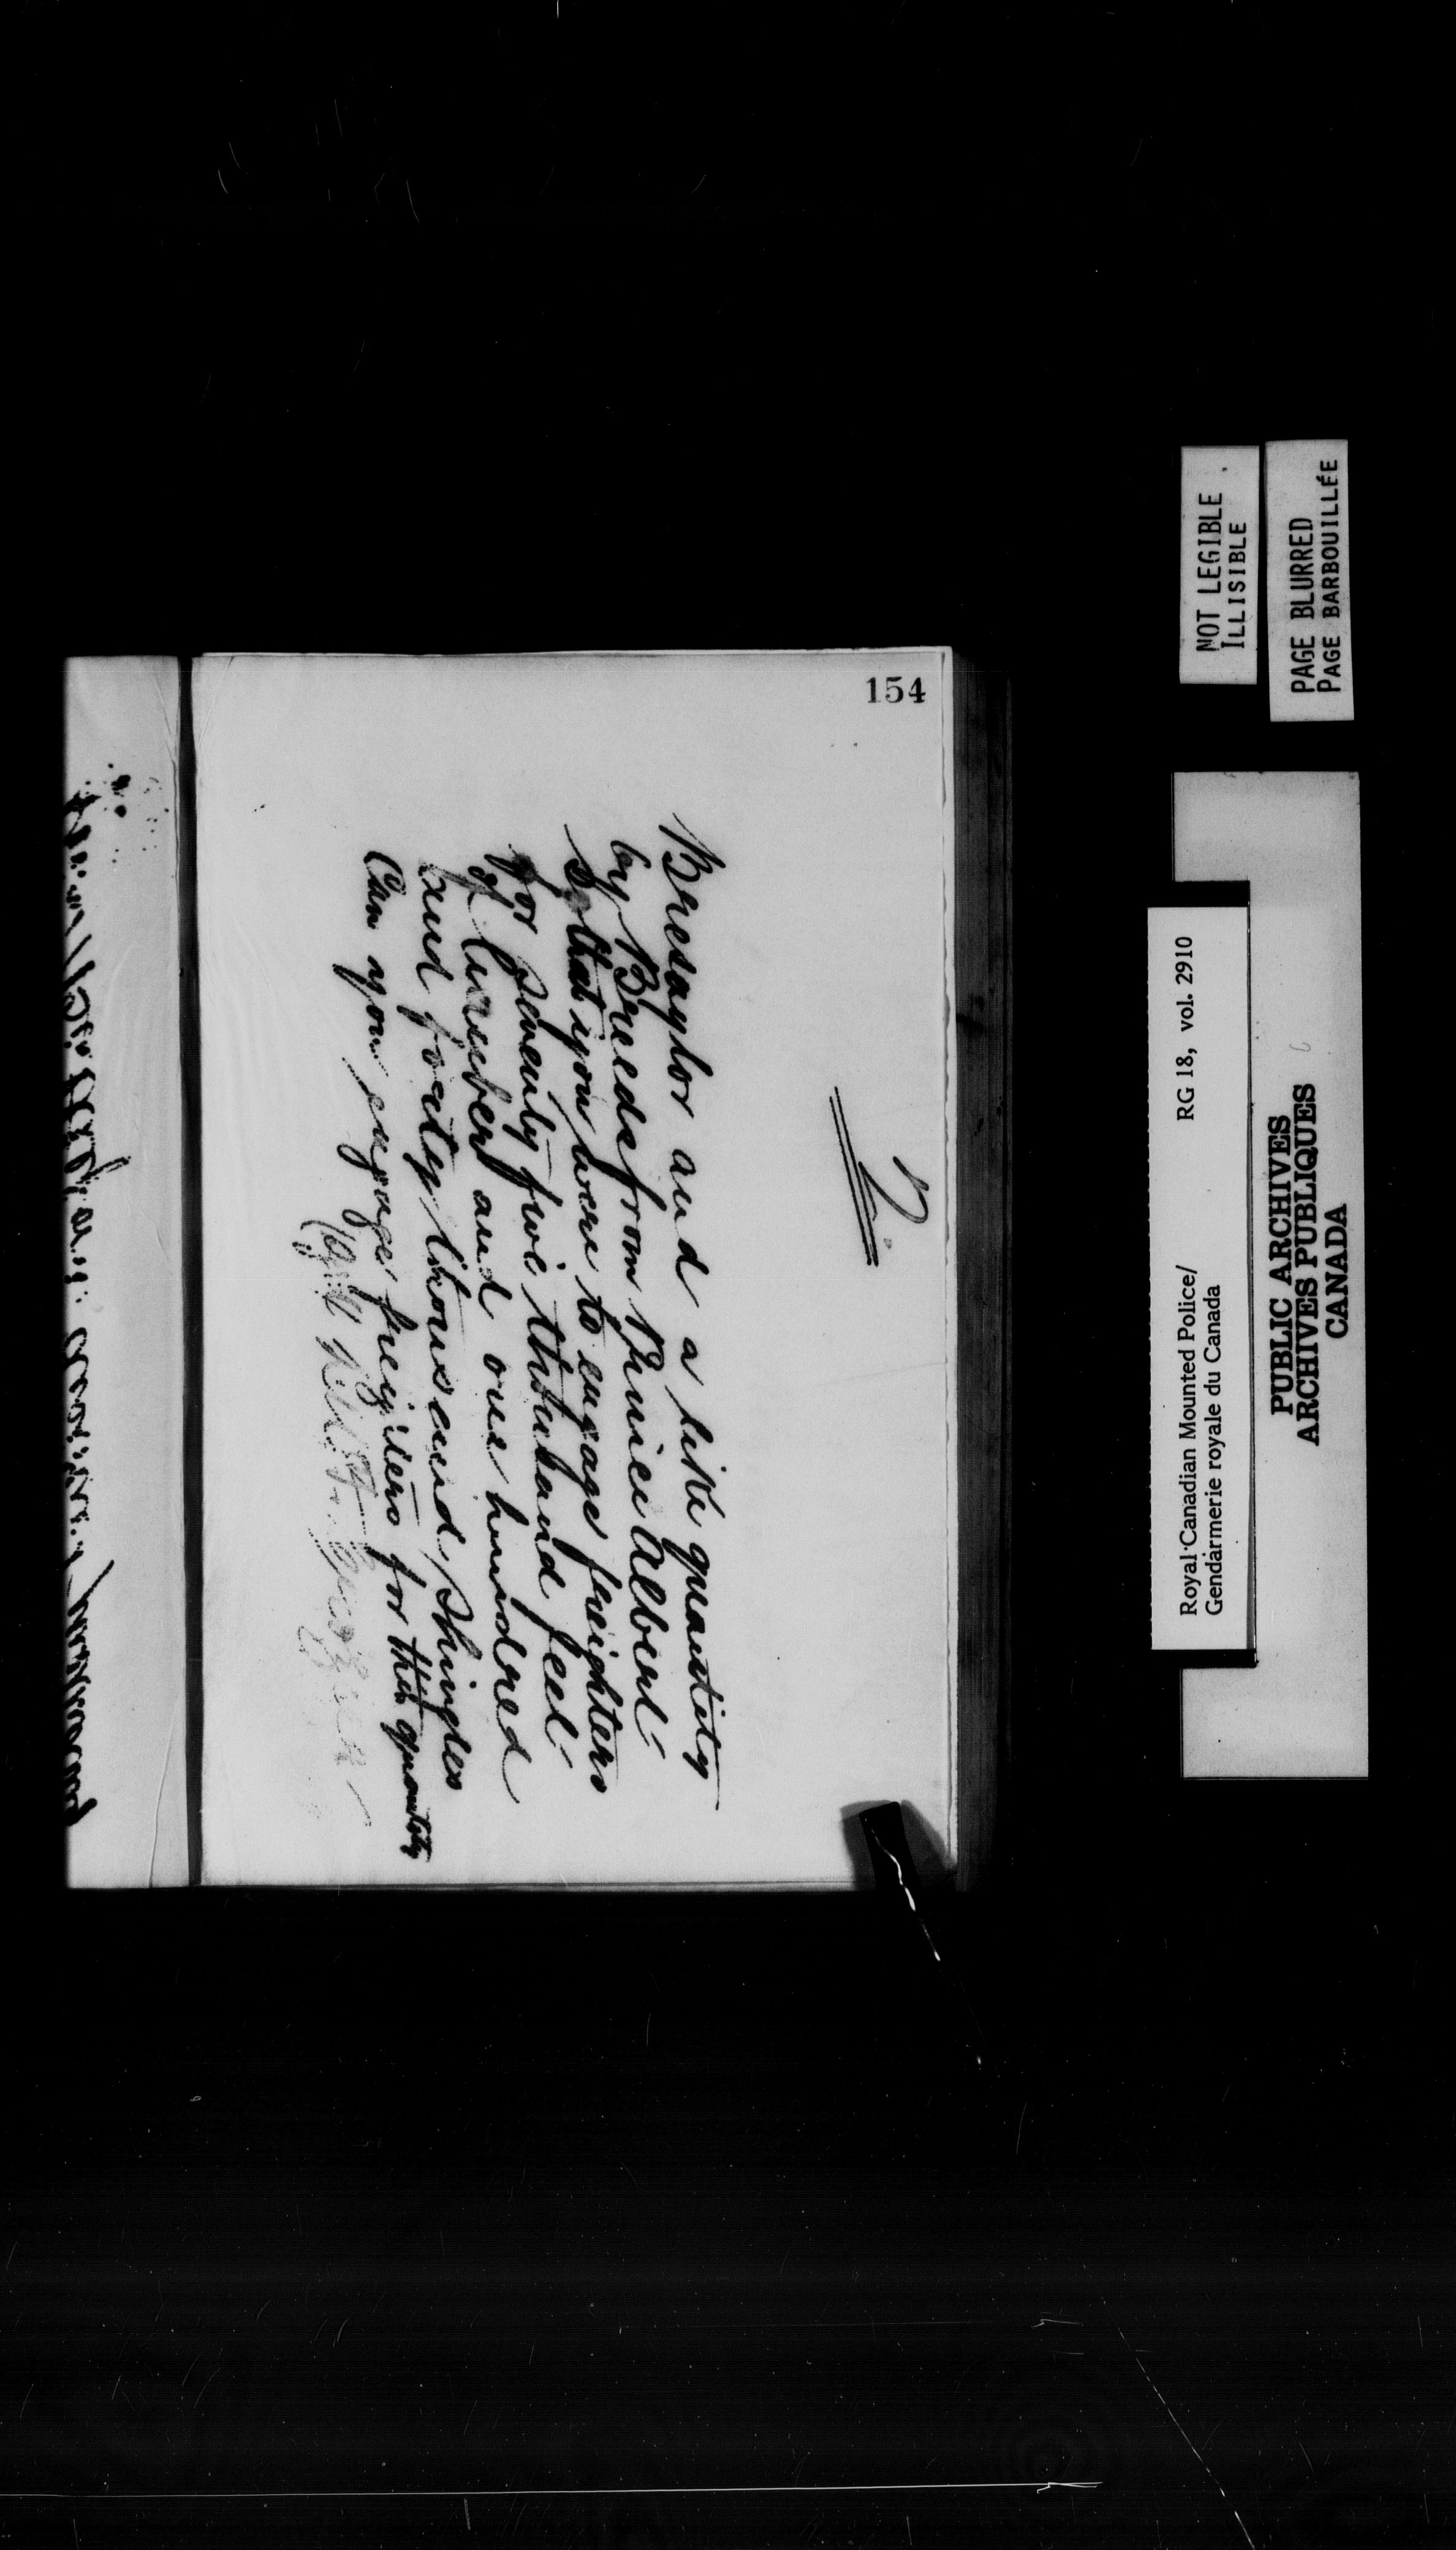 154
2.
Bresaylor and a like quantity
by Breeds from Prince Albert
so that you were to engage freighters
for seventy five thousand feet
of lumber and one hundred
and forty thousand shingles
Can you engage freighters for this quantity
NOT LEGIBLE
ILLISIBLE
PAGE BLURRED
PAGE BARBOUILLÉE
Royal Canadian Mounted Police/
Gendarmerie royale du Canada
RG 18, vol. 2910
PUBLIC ARCHIVES
ARCHIVES PUBLIQUES
CANADA